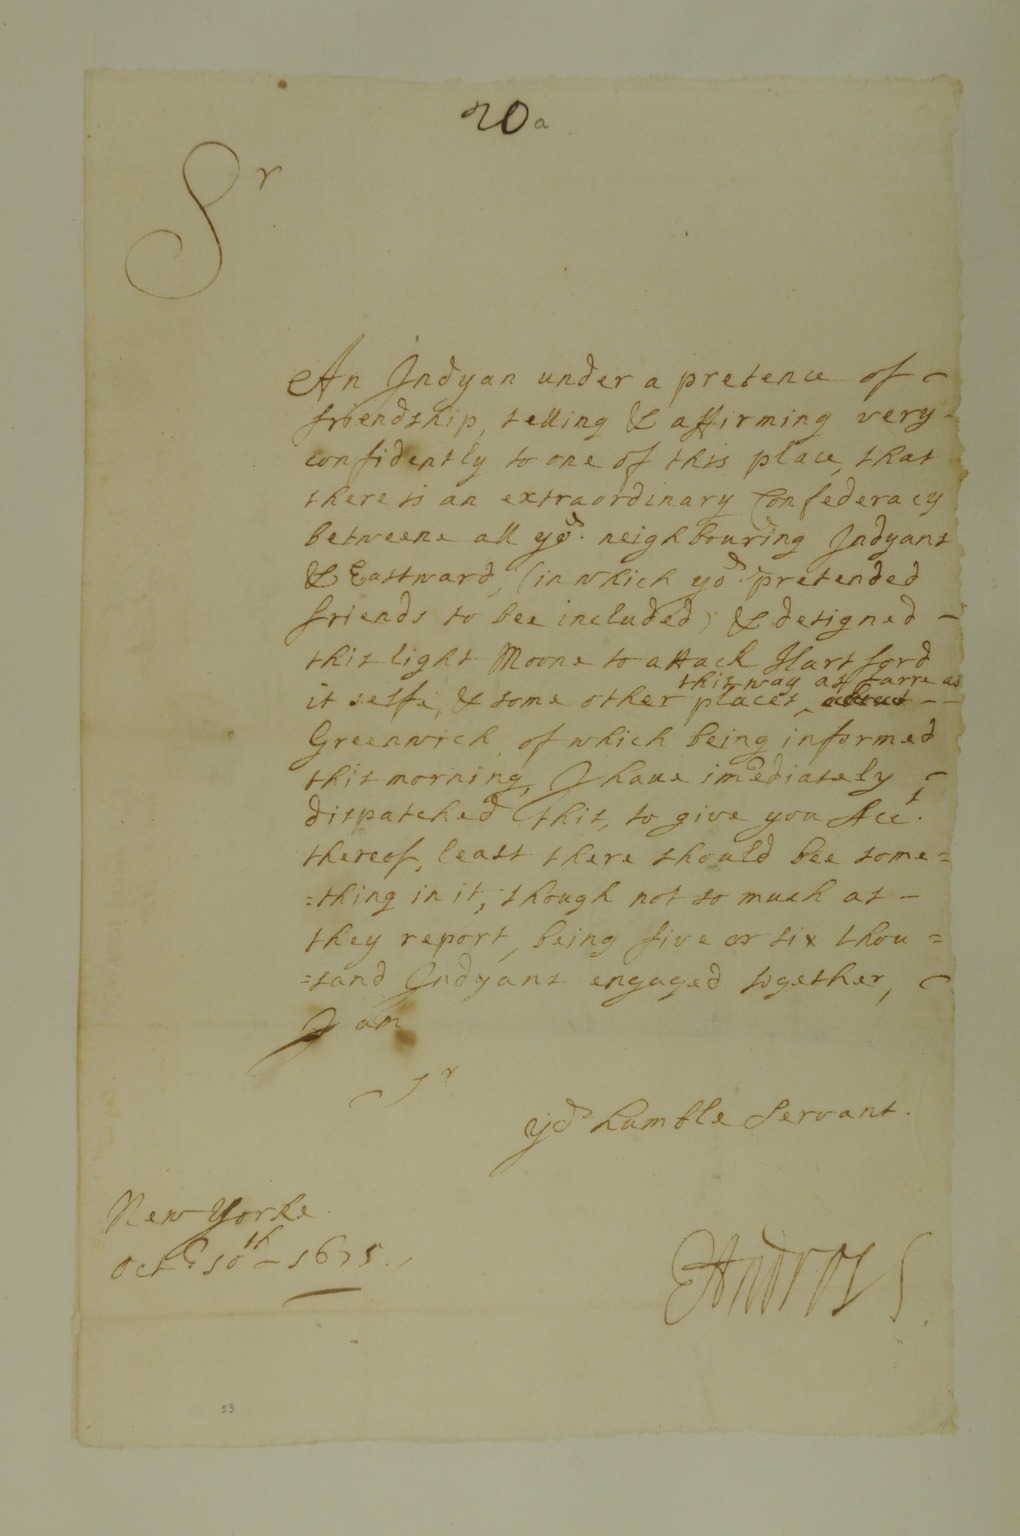 20a
Sr
An Indyan under a pretence of
friendship, telling & affirming very
confidently to one of this place, that
there is an extraordinary Confederacy
betweene all yor. neighbouring Indyans
& Eastward, (in which yor. pretended
friends to bee included) & designed -
this light Moone to attack Hartford
this way as farre as
it selfe, & some other places, about - -
Greenwich, of which being informed
this morning, I haue imediately
dispatched this, to give you Acct.
thereof, least there should bee some=
=thing in it, though not so much as -
they report, being five or six thou=
=sand Indyans engaged together,
I am
Sr
yor humble Servant.
New Yorke.
Octr. 10th - 1675.
EAndross
53